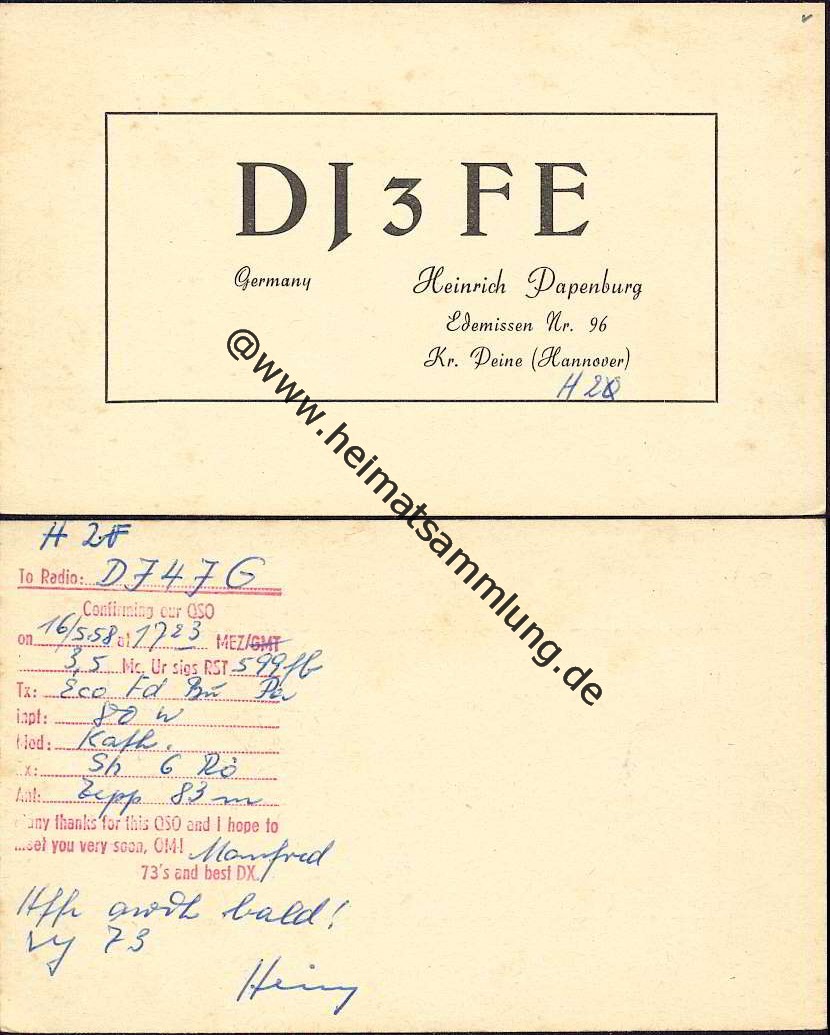 DJ3FE
Germany
Heinrich Papenburg
Edemissen Nr. 96
Kr. Peine (Hannover)
@www.heimatsammlung.de
To Radio: DJ4JG
Confirming our QSO
on 16/5.58 at 1723 MEZ/GMT
3,5 Mc. Ur sigs RST 599 fb
Tx: Eco Fd Bu Pa
inpt: 80 W
Mod: Kath.
x: Sh 6 Rö
Ant: Zepp 83 m
any thanks for this QSO and I hope to
eet you very soon, OM! Manfred
73's and best DX.
bald!
vy 73